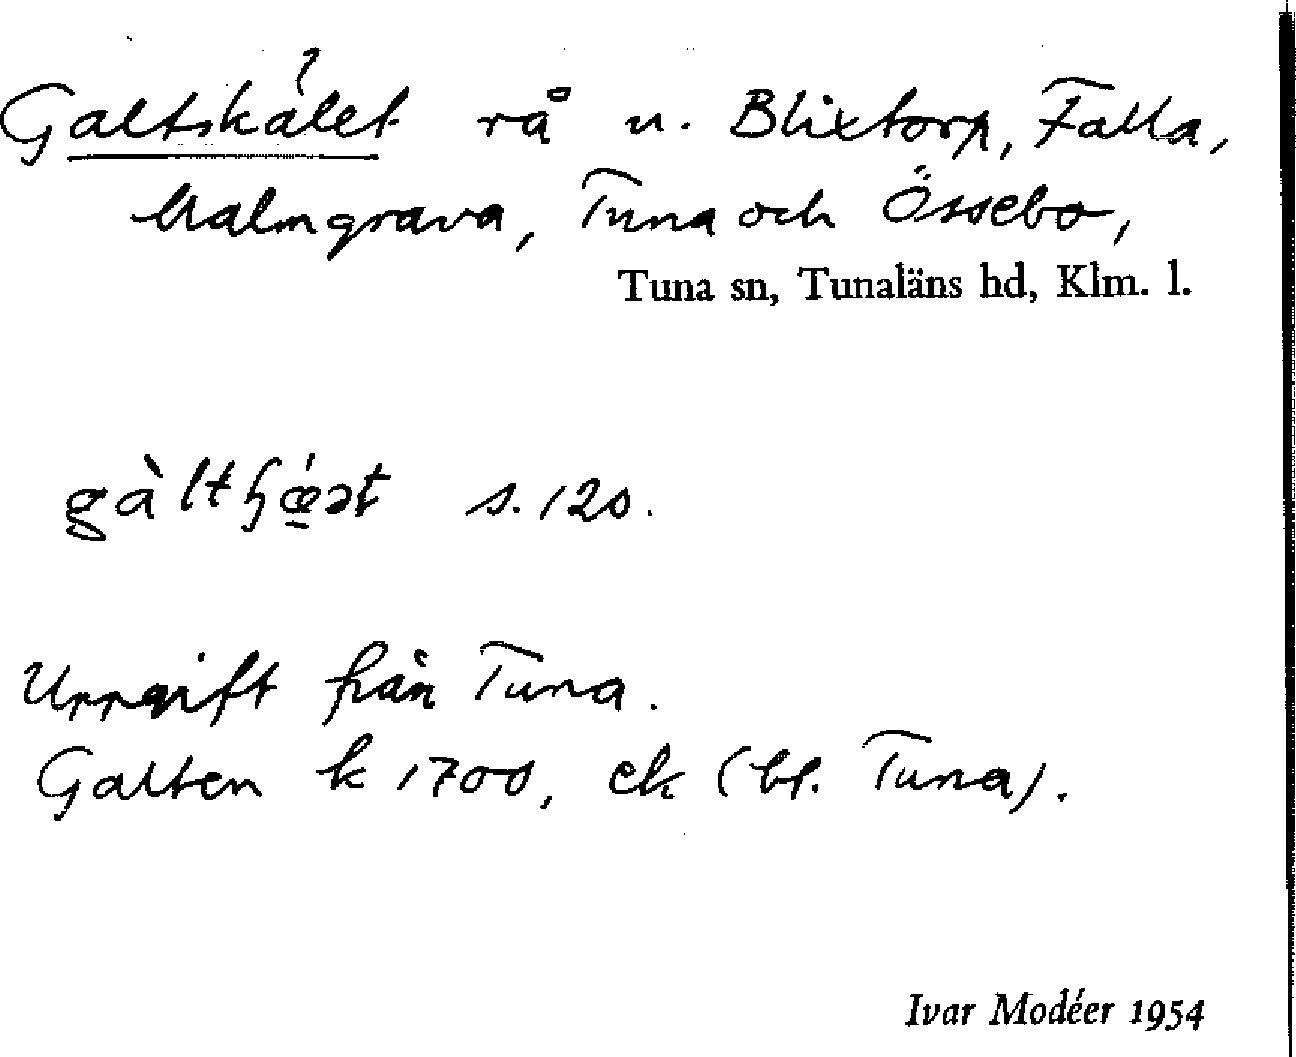 ?
Galtskälet rå u. Blixtorp, Falla,
Malmgrava, Tuna och Össebo,
Tuna sn, Tunaläns hd, Klm. l.
s. 120.
Uppgift från Tuna.
Galten k 1700, ek (bl. Tuna).
Ivar Modéer 1954